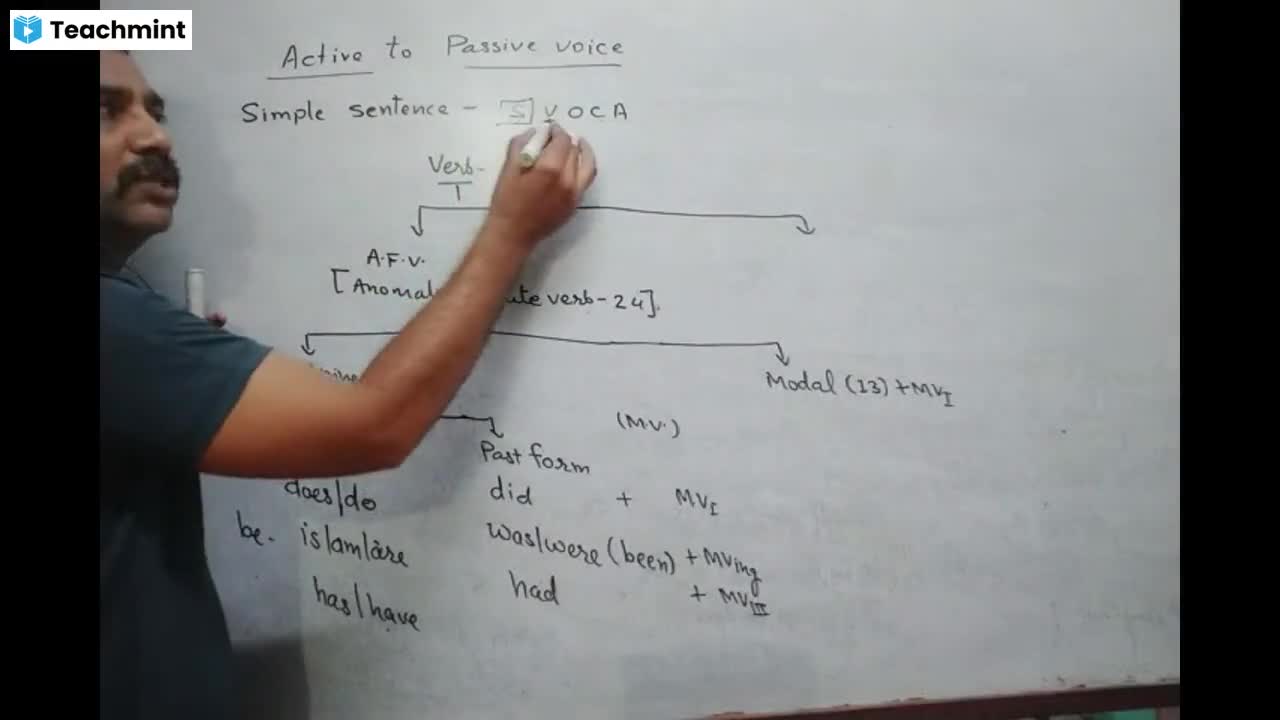 Teachmint
Active to Passive voice
Simple sentence - S V O C A
Verb-
A.F.V.
[Anomal ute verb - 24].
Modal (13) + MVI
(M.V.)
Past form
does/do did + MVI
be. is/am/are was/were (been) + MVing
has/have had + MVIII